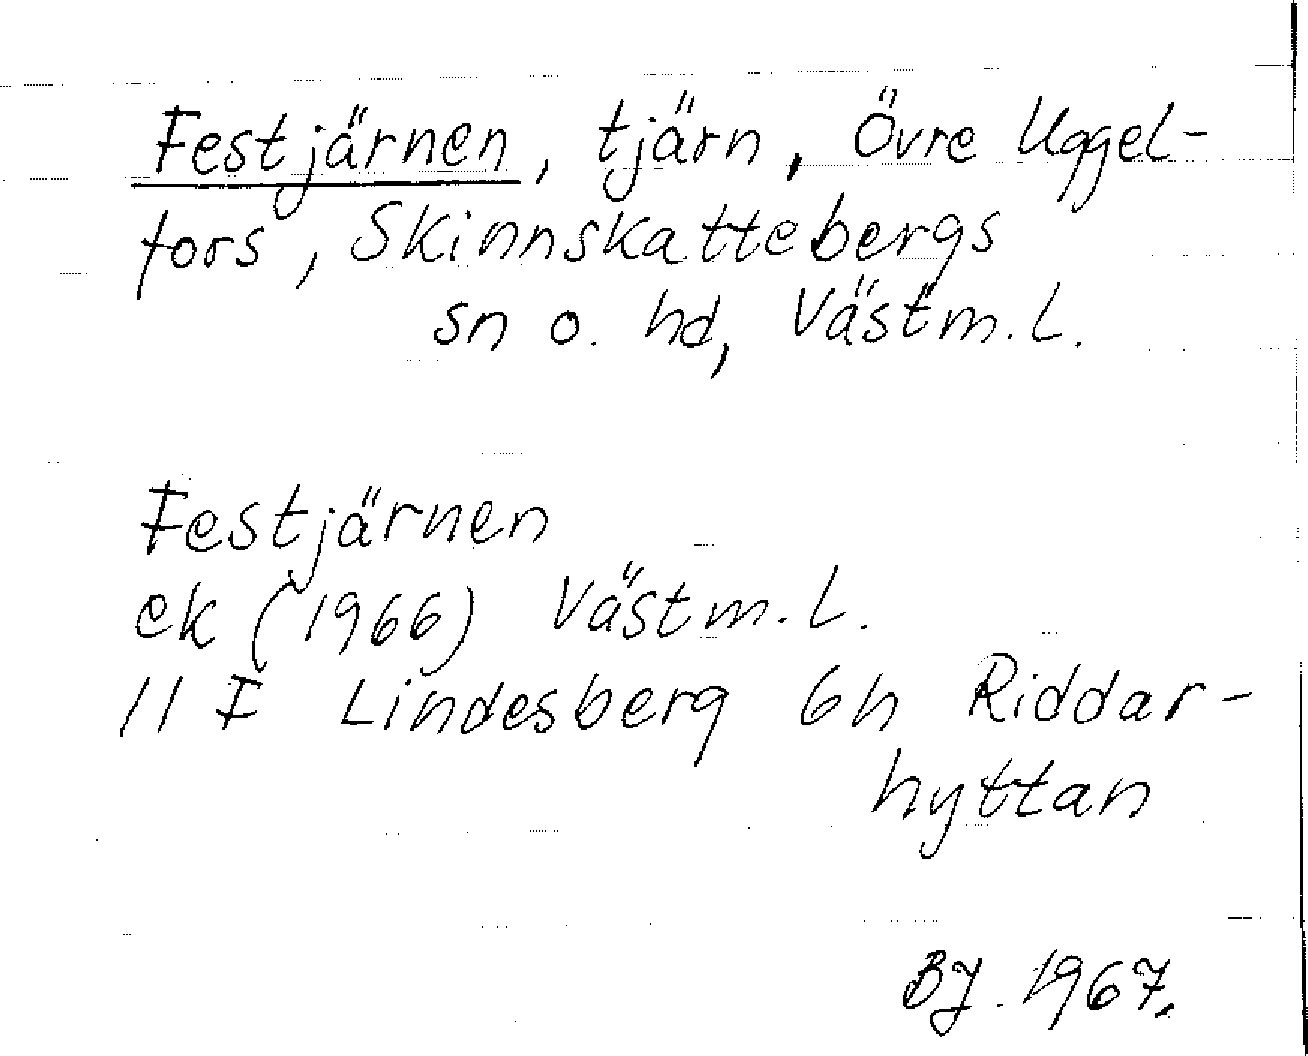 Festjärnen, tjärn, Övre Uggel-
fors, Skinnskattebergs
sn o. hd, Västm.l.
Festjärnen
ek (1966) Västm.l.
11 F Lindesberg 6h Riddar-
hyttan
BJ. 1967.